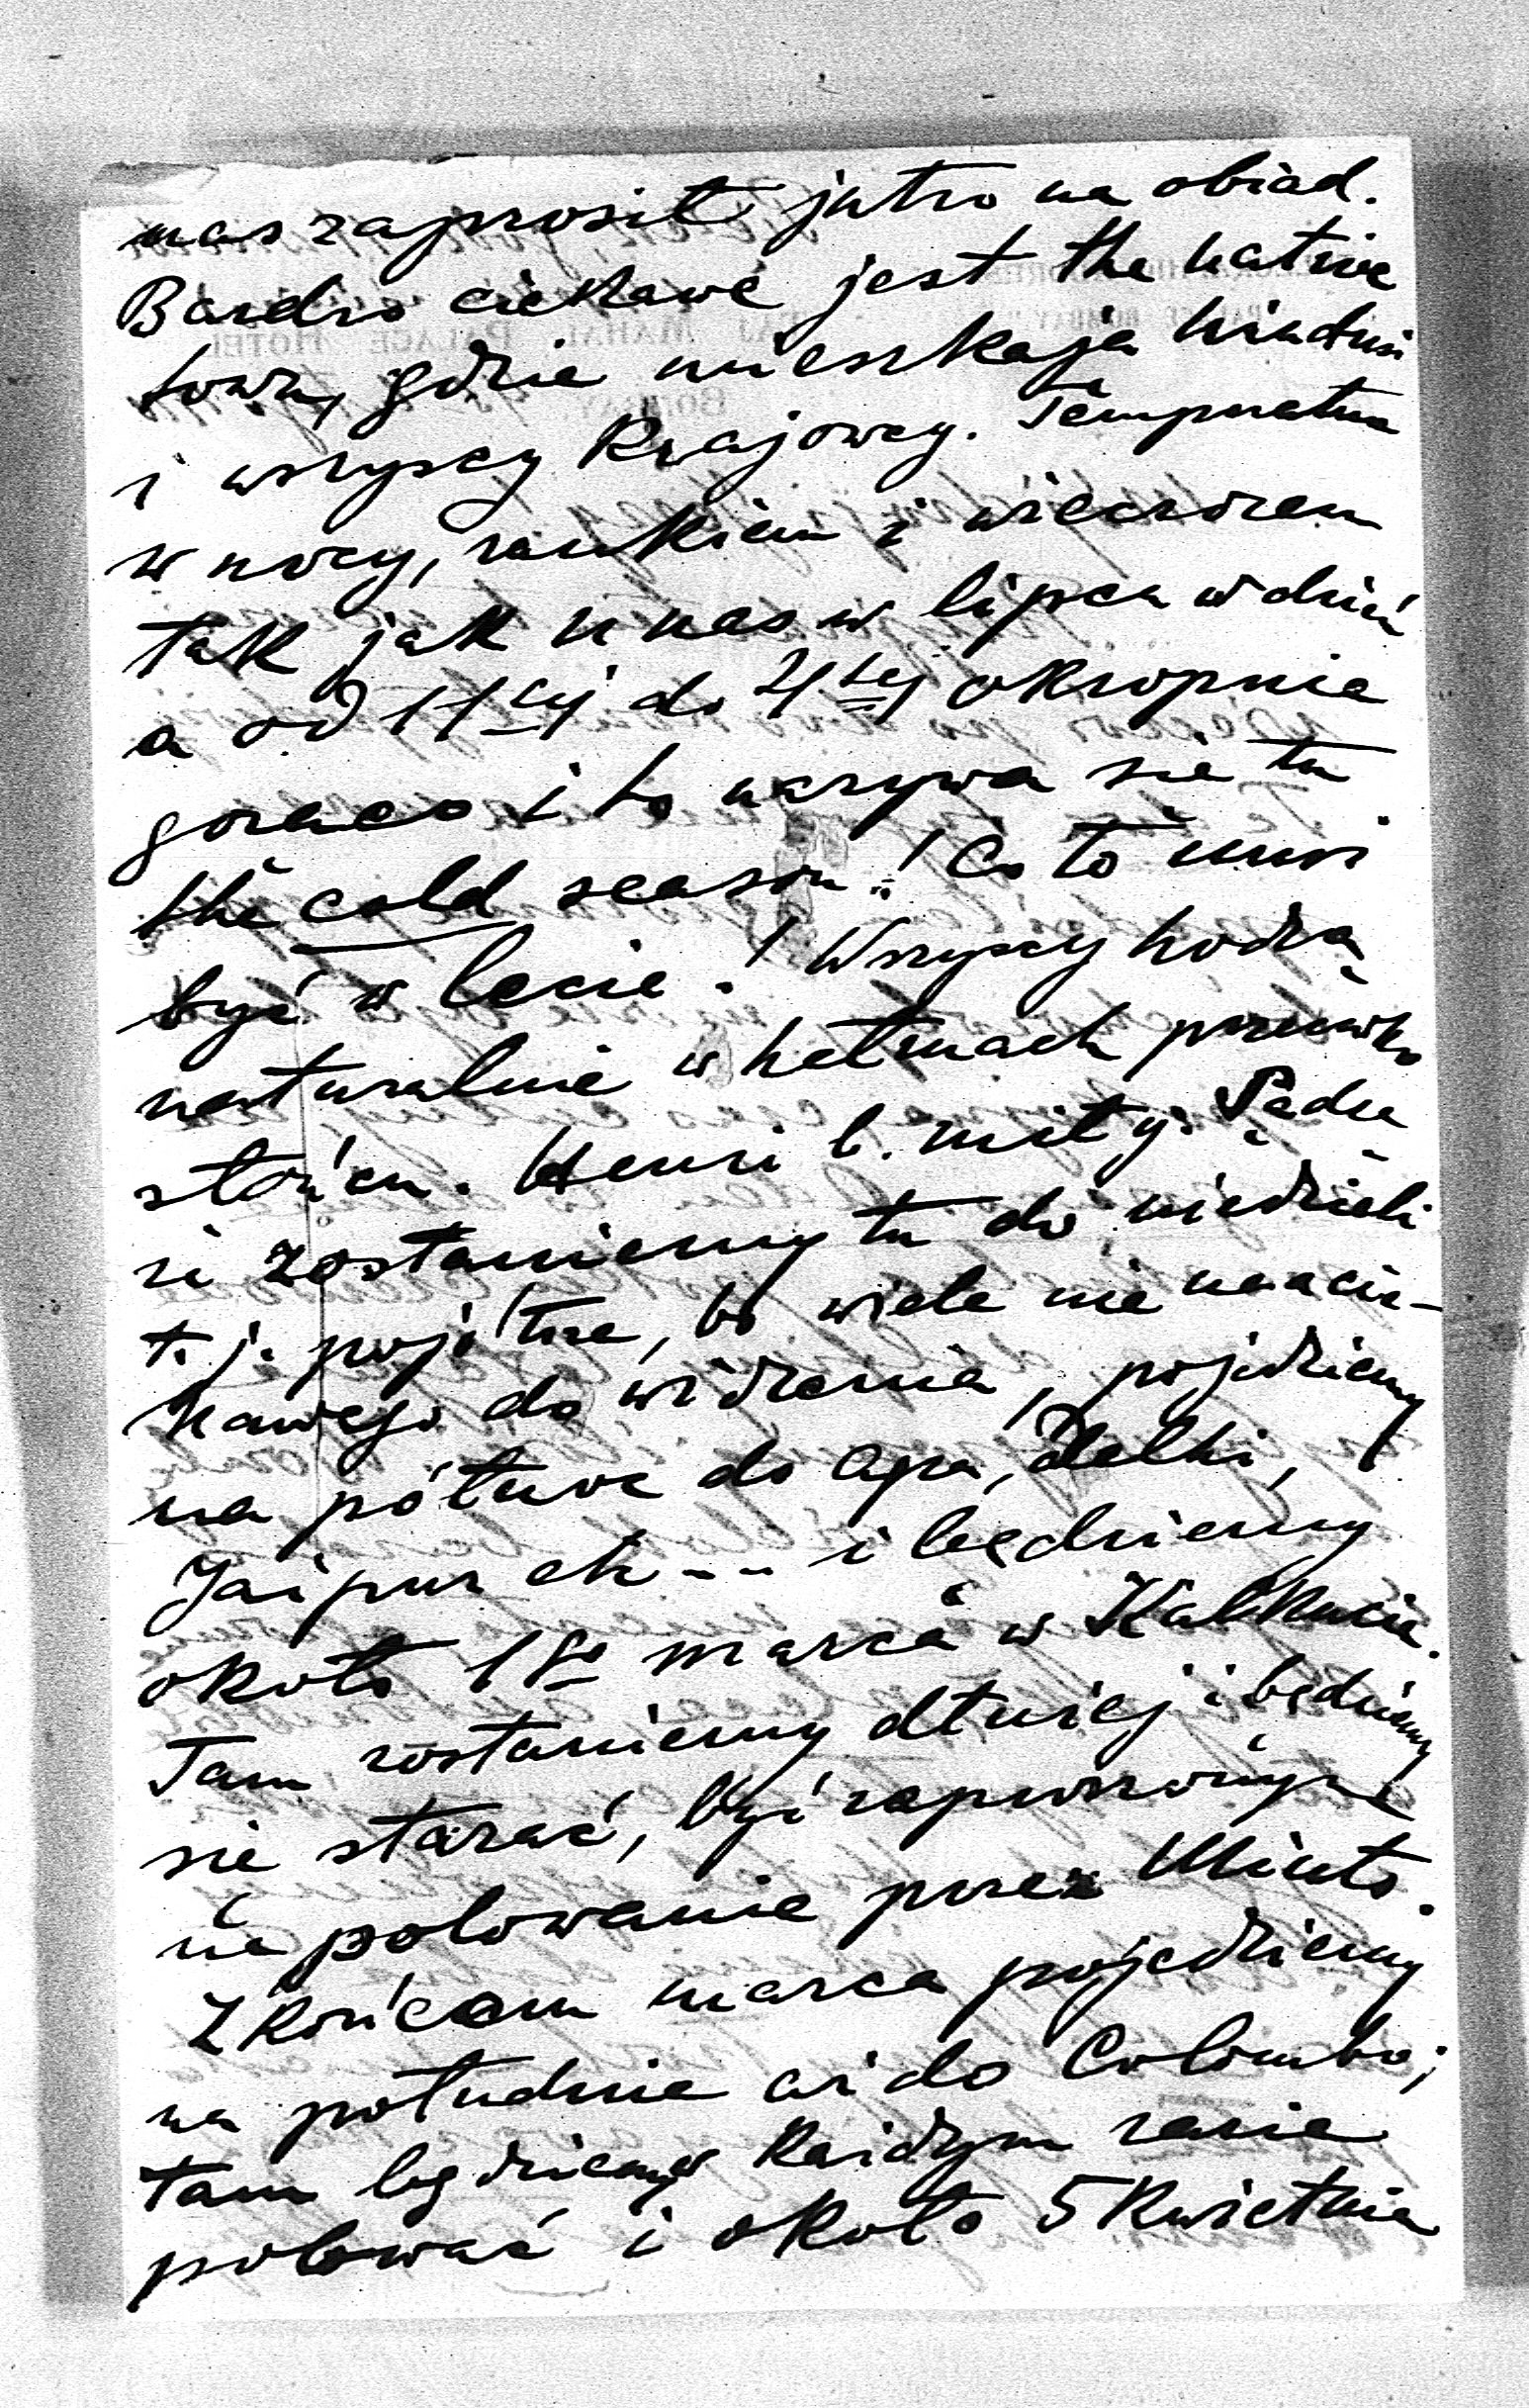 nas zaprosił jutro na obiad.
Bardzo ciekawe jest the native
town, gdzie mieszkają hindusi
i wszyscy krajowcy. Temperatura
w nocy, rankiem i wieczorem
tak jak u nas w lipcu w dzień
a od 11tej do 4tej okropnie
gorąco i to nazywa się tu
the cold season! Co to musi
być w lecie! Wszyscy hodzą
naturalnie w hełmach przeciwko
słońcu. Henri b. miły. Sądzę
że zostaniemy tu do niedzieli
t. j. pojutrze, bo wiele nie ma cie-
kawego do widzenia, pojedziemy
na północ do Agra, Delhi,
Jaipur etc... i będziemy
około 18o marca w Kalkucie.
Tam zostaniemy dłużej i będziemy
się starać, być zaproszonym
na polowanie przez Minto.
Z końcem marca pojedziemy
na południe aż do Colombo;
tam będziemy w każdym razie
polować i około 5 kwietnia